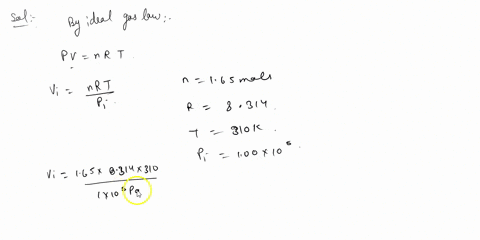 Sol:. By ideal gas law:.
PV = nRT
Vi = nRT / Pi.
n = 1.65 mols
R = 8.314
T = 310K
Pi = 1.00 × 10⁵.
Vi = 1.65 × 8.314 × 310 / 1 × 10⁵ Pa